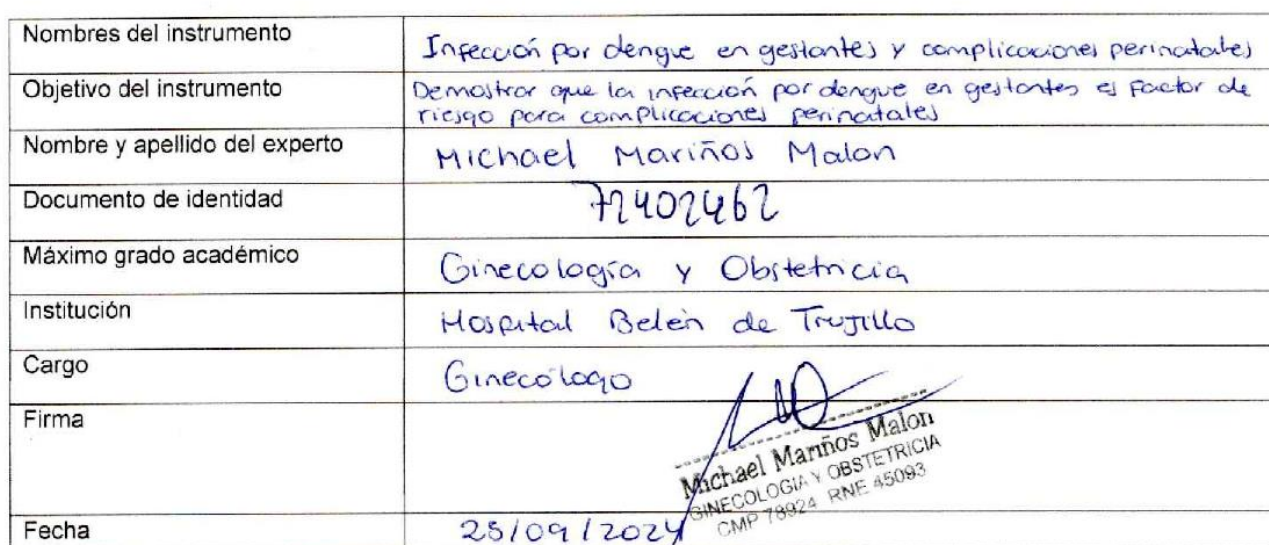 Nombres del instrumento
Infección por dengue en gestantes y complicaciones perinatales
Objetivo del instrumento
Demostrar que la infección por dengue en gestantes es factor de
riesgo para complicaciones perinatales
Nombre y apellido del experto
Michael Mariños Malon
Documento de identidad
72402462
Máximo grado académico
Ginecología y Obstetricia
Institución
Hospital Belén de Trujillo
Cargo
Ginecólogo
Firma
Michael Mariños Malon
GINECOLOGIA Y OBSTETRICIA
CMP 78924 RNE 45093
Fecha
25/09/2024